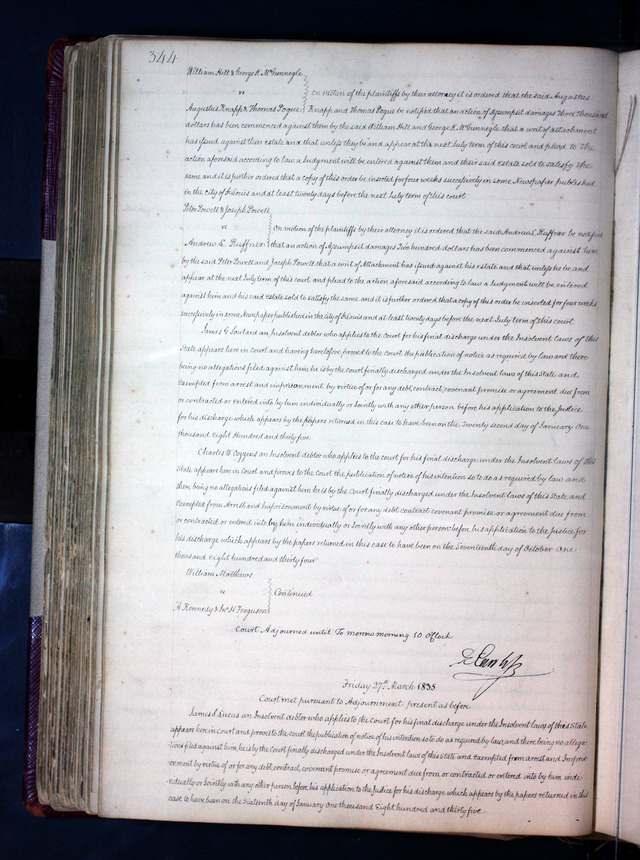 344
William Hill & George K McGunnegle
vs
on motion of the plaintiffs by their attorney it is ordered that the said Augustus
Augustus Knapp & Thomas Pogue Knapp and Thomas Pogue be notified that an action of assumpsit damages three thousand
dollars has been commenced against them by the said William Hill and George K McGunnegle that a writ of attachment
has issued against their estate and that unless they be and appear at the next July term of this court and plead to the
action aforesaid according to law a Judgment will be entered against them and their said Estate sold to satisfy the
same and it is further ordered that a copy of this order be inserted for four weeks successively in some Newspaper published
in the city of St Louis and at least twenty days before the next July term of this court
Peter Powell & Joseph Powell
vs
on motion of the plaintiffs by their attorney it is ordered that the said Andrew L. Ruffner be notified
Andrew L. Ruffner that an action of assumpsit damages Two hundred dollars has been commenced against him
by the said Peter Powell and Joseph Powell that a writ of Attachment has issued against his estate and that unless he be and
appear at the next July term of this court and plead to the action aforesaid according to law a Judgment will be entered
against him and his said Estate sold to satisfy the same and it is further ordered that a copy of this order be inserted for four weeks
successively in some Newspaper published in the City of St Louis and at least twenty days before the next July term of this court.
James G Soulard an Insolvent debtor who applies to the court for his final discharge under the Insolvent laws of this
State appears here in court and having heretofore proved to the court the publication of notice as required by law and there
being no allegations filed against him, he is by the court finally discharged under the Insolvent laws of this State and
Exempted from arrest and imprisonment by virtue of or for any debt, contract, covenant promise or agreement due from
or contracted or entered into by him individually or Jointly with any other person before his application to the Justice
for his discharge which appears by the papers returned in this case to have been on the Twenty second day of January One
thousand Eight Hundred and thirty five
Charles W Coggins an Insolvent debtor who applies to the court for his final discharge under the Insolvent laws of this
State appears here in Court and proves to the Court the publication of notice of his intention so to do as required by law and
there being no allegations filed against him he is by the Court finally discharged under the Insolvent laws of this State and
Exempted from Arrest and Imprisonment by virtue of or for any debt contract covenant promise or agreement due from
or contracted or entered into by him individually or Jointly with any other person before his application to the Justice for
his discharge which appears by the papers returned in this case to have been on the Seventeenth day of October One
thousand Eight hundred and thirty four
William Matthews
vs
Continued
A Kennedy & Jno H Ferguson
Court Adjourned until To morrow morning 10 oClock
Friday 27th March 1835
Court met pursuant to Adjournment present as before
James S Lucas an Insolvent debtor who applies to the Court for his final discharge under the Insolvent laws of this State
appears here in court and proves to the court the publication of notice of his intention so to do as required by law, and there being no allega-
tions filed against him, he is by the Court finally discharged under the Insolvent laws of this State and Exempted from arrest and Impris-
onment by virtue of or for any debt, contract, covenant promise or agreement due from or contracted or entered into by him indi-
vidually or Jointly with any other person before his application to the Justice for his discharge which appears by the papers returned in this
case to have been on the Sixteenth day of January One thousand Eight hundred and thirty five